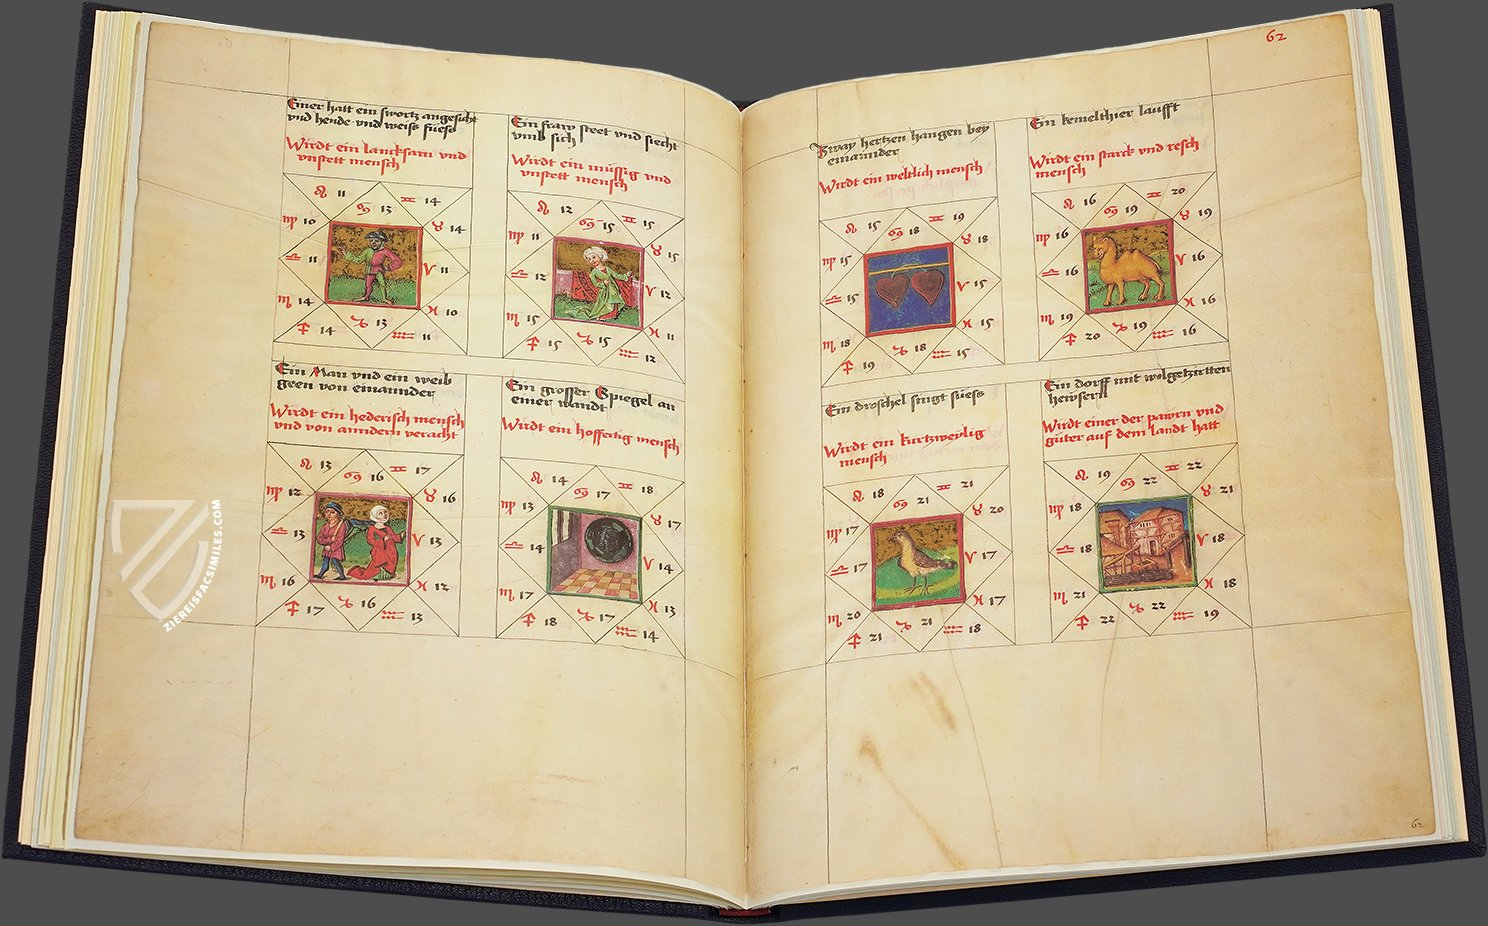 Einer hatt ein swortz angesicht
vnd hende vnd weiss fuess
Wirdt ein lancksam vnd
vnstett mensch
♌ 11 ♋ 13 ♊ 14
♍ 10 ♉ 14
♎ 11 ♈ 11
♏ 14 ♓ 10
♐ 14 ♑ 13 ♒ 11
Ein fraw steet vnd siecht
vmb sich
Wirdt ein müssig vnd
vnstett mensch
♌ 12 ♋ 15 ♊ 15
♍ 11 ♉ 15
♎ 12 ♈ 12
♏ 15 ♓ 11
♐ 15 ♑ 15 ♒ 12
Ein Man vnd ein weib
geen von einannder
Wirdt ein hederisch mensch
vnd von anndern veracht
♌ 13 ♋ 16 ♊ 17
♍ 12 ♉ 16
♎ 13 ♈ 13
♏ 16 ♓ 12
♐ 17 ♑ 16 ♒ 13
Ein grosser Spiegel an
einer wandt
Wirdt ein hoffertig mensch
♌ 14 ♋ 17 ♊ 18
♍ 13 ♉ 17
♎ 14 ♈ 14
♏ 17 ♓ 13
♐ 18 ♑ 17 ♒ 14
62
Zway hertzen hangen bey
einannder
Wirdt ein weltlich mensch
♌ 15 ♋ 18 ♊ 19
♍ 15 ♉ 18
♎ 15 ♈ 15
♏ 18 ♓ 15
♐ 19 ♑ 18 ♒ 15
Ein kemelthier laufft
Wirdt ein starck vnd resch
mensch
♌ 16 ♋ 19 ♊ 20
♍ 16 ♉ 19
♎ 16 ♈ 16
♏ 19 ♓ 16
♐ 20 ♑ 19 ♒ 16
Ein droschel singt suess
Wirdt ein kurtzweylig
mensch
♌ 18 ♋ 21 ♊ 21
♍ 17 ♉ 20
♎ 17 ♈ 17
♏ 20 ♓ 17
♐ 21 ♑ 21 ♒ 18
Ein dorff mit wolgetzirtten
hewsern
Wirdt einer der pawrn vnd
güter auf dem landt hatt
♌ 19 ♋ 22 ♊ 22
♍ 18 ♉ 21
♎ 18 ♈ 18
♏ 21 ♓ 18
♐ 22 ♑ 22 ♒ 19
62
ZIEREISFACSIMILES.COM